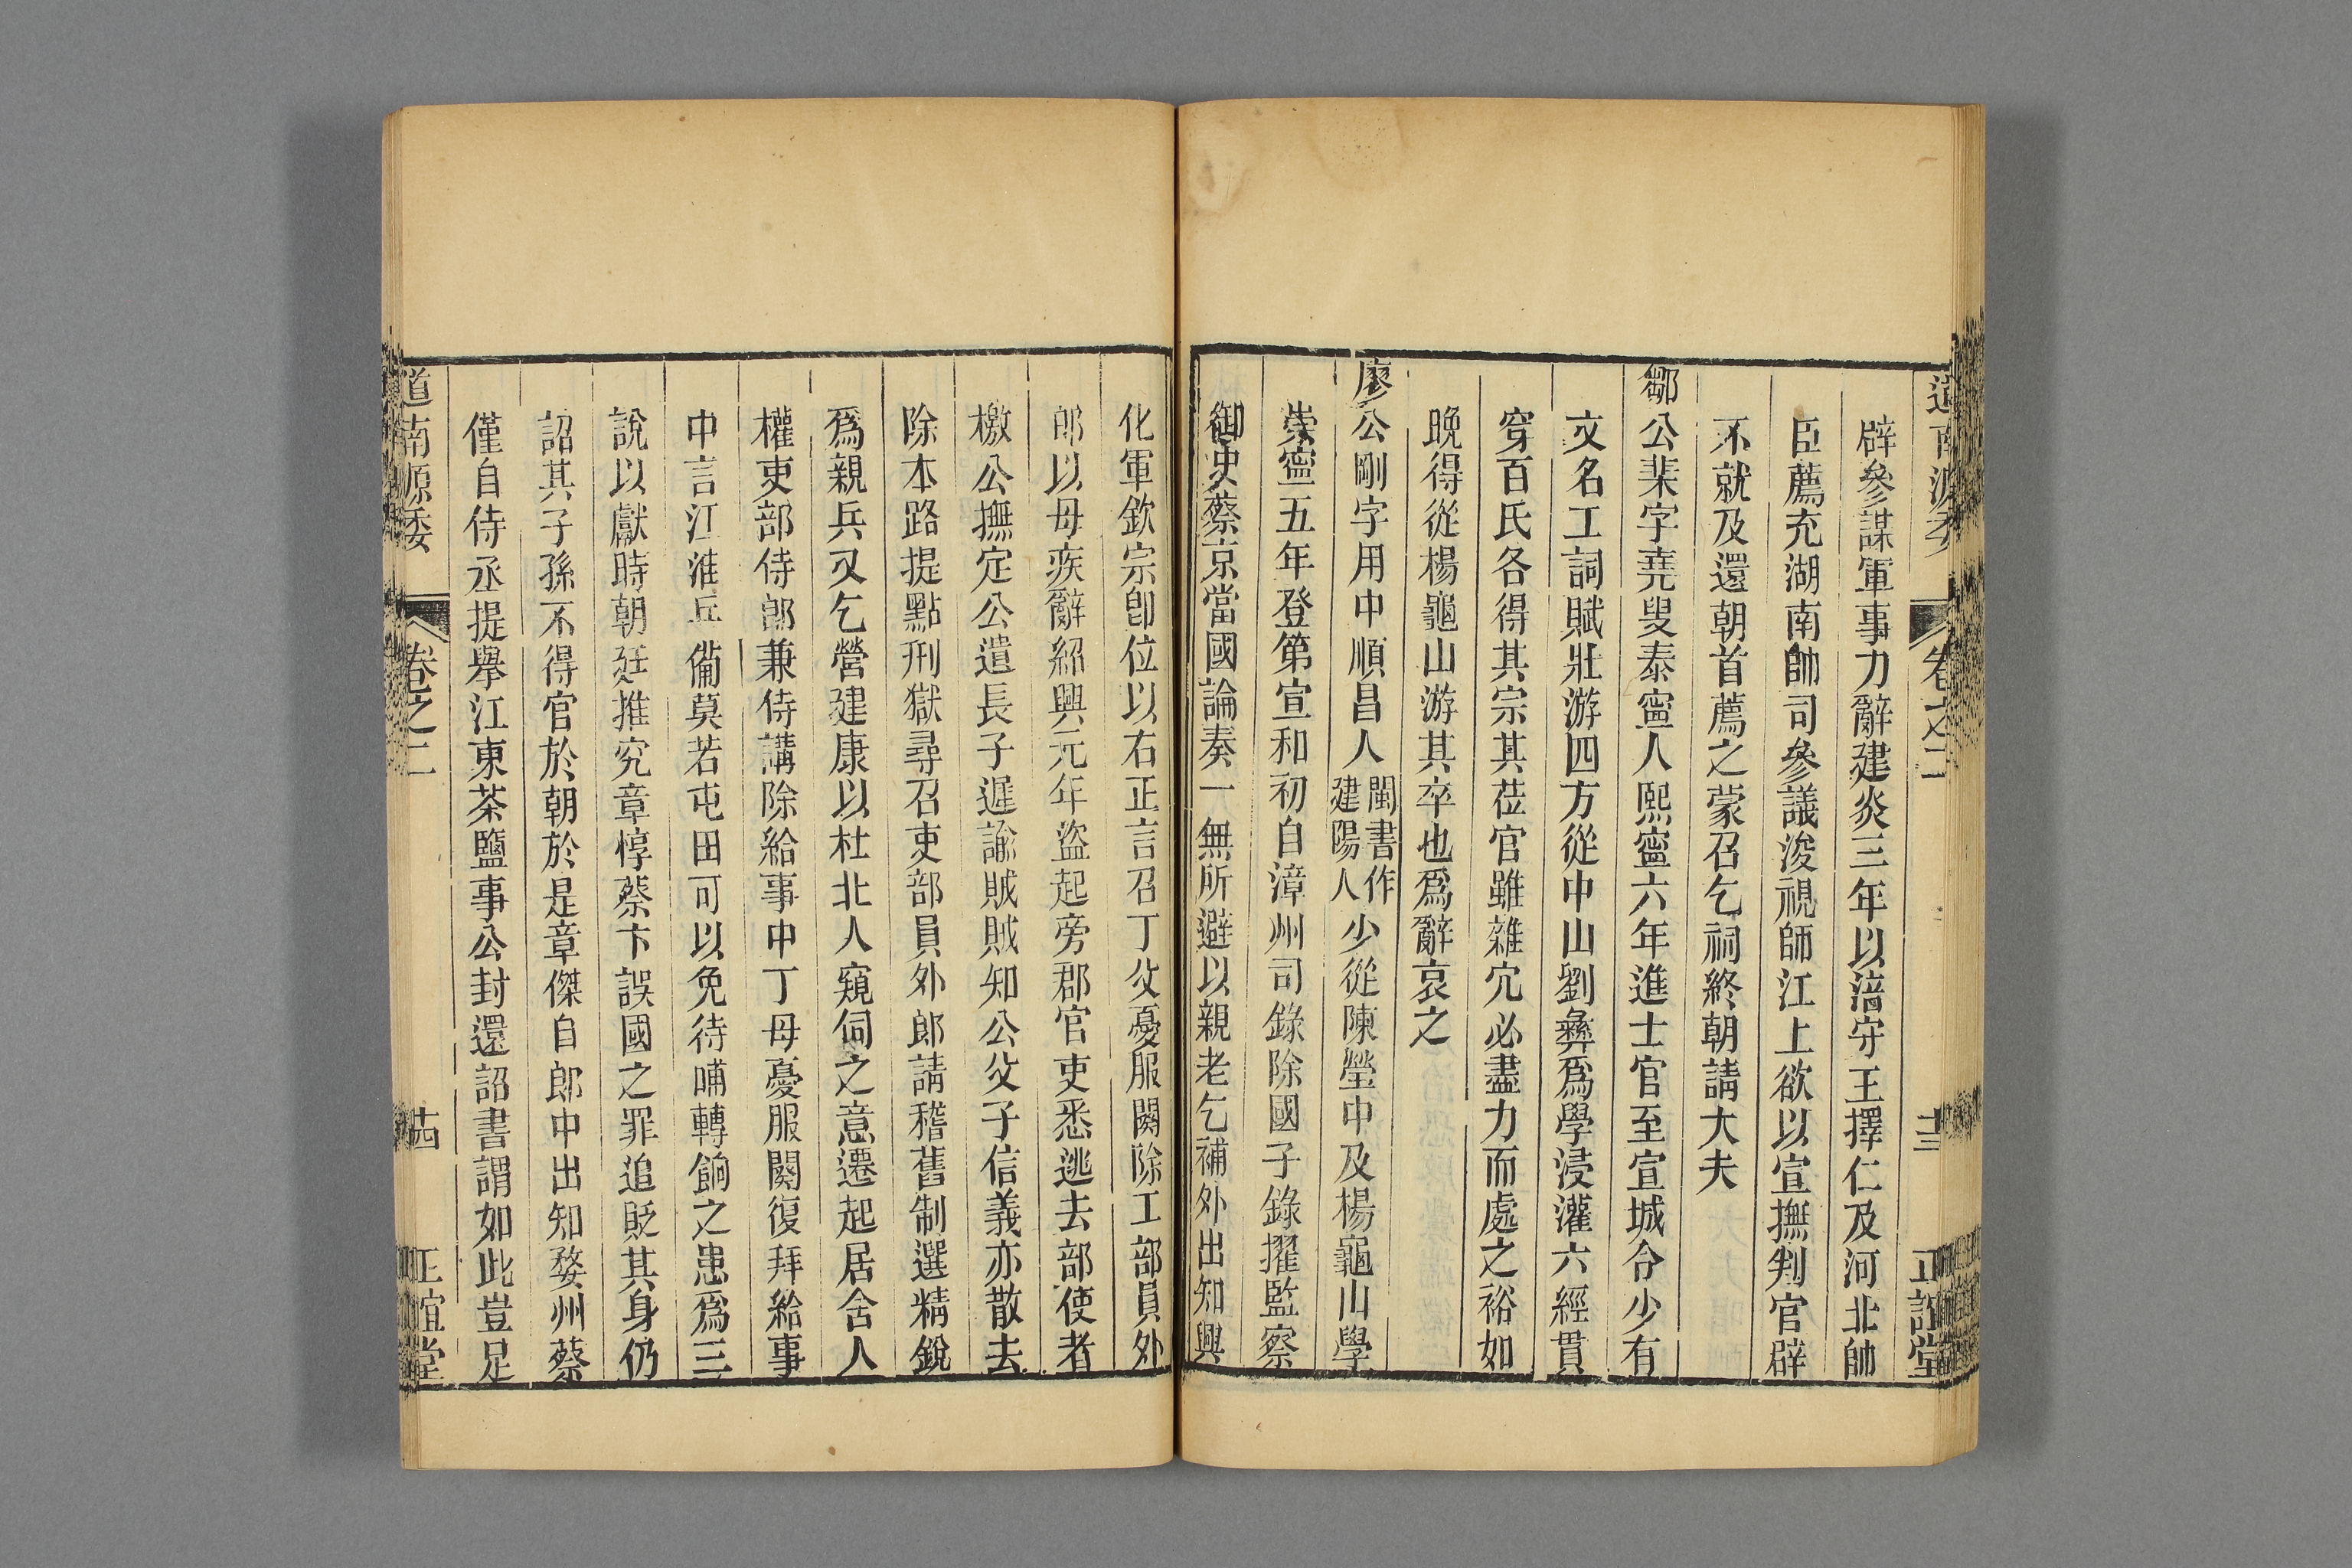 道南源委 卷之二 十三 正誼堂
辟參謀軍事力辭建炎三年以涪守王擇仁及河北帥
臣薦充湖南帥司參議浚視師江上欲以宣撫判官辟
不就及還朝首薦之蒙召乞祠終朝請大夫
鄒公棐字堯叟泰寧人熙寧六年進士官至宣城令少有
文名工詞賦壯游四方從中山劉彝爲學浸灌六經貫
穿百氏各得其宗其莅官雖雜宂必盡力而處之裕如
晩得從楊龜山游其卒也爲辭哀之
廖公剛字用中順昌人閩書作建陽人少從陳瑩中及楊龜山學
崇寧五年登第宣和初自漳州司錄除國子錄擢監察
御史蔡京當國論奏一無所避以親老乞補外出知興
化軍欽宗卽位以右正言召丁父憂服闋除工部員外
郎以母疾辭紹興元年盜起旁郡官吏悉逃去部使者
檄公撫定公遣長子遲諭賊賊知公父子信義亦散去
除本路提點刑獄尋召吏部員外郎請稽舊制選精銳
爲親兵又乞營建康以杜北人窺伺之意遷起居舍人
權吏部侍郎兼侍講除給事中丁母憂服闋復拜給事
中言江淮屯備莫若屯田可以免待哺轉餉之患爲三
說以獻時朝廷推究章惇蔡卞誤國之罪追貶其身仍
詔其子孫不得官於朝於是章傑自郎中出知婺州蔡
僅自侍丞提舉江東茶鹽事公封還詔書謂如此豈足
道南源委 卷之二 十四 正誼堂